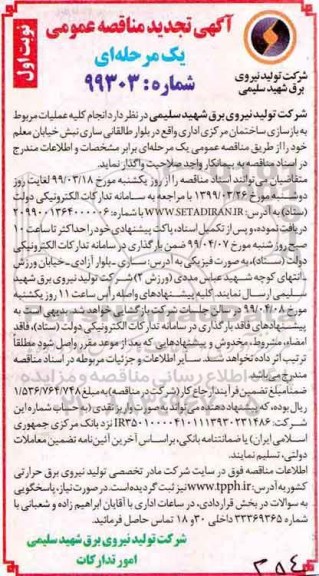 آگهی تجدید مناقصه عمومی
یک مرحله‌ای
شماره: ۹۹۳۰۳
نوبت اول
شرکت تولید نیروی
برق شهید سلیمی
شرکت تولید نیروی برق شهید سلیمی در نظر دارد انجام کلیه عملیات مربوط
به بازسازی ساختمان مرکزی اداری واقع در بلوار طالقانی ساری نبش خیابان معلم
خود را از طریق مناقصه عمومی یک مرحله‌ای برابر مشخصات و اطلاعات مندرج
در اسناد مناقصه به پیمانکار واجد صلاحیت واگذار نماید.
متقاضیان می‌توانند اسناد مناقصه را از روز یکشنبه مورخ ۹۹/۰۳/۱۸ لغایت روز
دوشنبه مورخ ۱۳۹۹/۰۳/۲۶ با مراجعه به سامانه تدارکات الکترونیکی دولت
(ستاد) به آدرس: WWW.SETADIRAN.IR با شماره: ۲۰۹۹۰۰۱۳۶۴۰۰۰۰۰۶
دریافت نموده و پس از تکمیل اسناد، پاکت پیشنهادی خود را حداکثر تا ساعت ۱۰
صبح روز شنبه مورخ ۹۹/۰۴/۰۷ ضمن بارگذاری در سامانه تدارکات الکترونیکی
دولت (ستاد)، به صورت فیزیکی به آدرس: ساری ـ بلوار آزادی ـ خیابان ورزش
ـ انتهای کوچه شهید عباس مددی (ورزش ۲) شرکت تولید نیروی برق شهید
سلیمی ارسال نمایند. کلیه پیشنهادهای واصله رأس ساعت ۱۱ روز یکشنبه
مورخ ۹۹/۰۴/۰۸ در سالن جلسات شرکت بازگشایی خواهد شد. بدیهی است به
پیشنهادهای فاقد بارگذاری در سامانه تدارکات الکترونیکی دولت (ستاد)، فاقد
امضاء، مشروط، مخدوش و پیشنهادهایی که بعد از موعد مقرر واصل شود مطلقاً
ترتیب اثر داده نخواهد شد. سایر اطلاعات و جزئیات مربوطه در اسناد مناقصه
مندرج می‌باشد.
ضمناً مبلغ تضمین فرآیند ارجاع کار (شرکت در مناقصه) به مبلغ ۱/۵۳۶/۷۶۴/۷۴۸
ریال بوده، که پیشنهاد دهنده می‌تواند به صورت واریز نقدی (به حساب شماره این
شرکت: IR۳۵۰۱۰۰۰۰۴۱۰۱۱۱۳۹۳۰۲۳۱۴۸۶ نزد بانک مرکزی جمهوری
اسلامی ایران) یا ضمانتنامه بانکی، براساس آخرین آئین نامه تضمین معاملات
دولتی، تسلیم نمایند.
اطلاعات مناقصه فوق در سایت شرکت مادر تخصصی تولید نیروی برق حرارتی
کشور به آدرس: www.tpph.ir نیز ثبت گردیده است. در صورت نیاز، پاسخگویی
به سوالات در بخش قراردادی، در ساعات اداری با آقایان ابراهیم زاده و شعبانی با
شماره ۳۳۳۶۹۳۶۵ داخلی ۳۰ و ۱۸ تماس حاصل فرمائید.
شرکت تولید نیروی برق شهید سلیمی
امور تدارکات